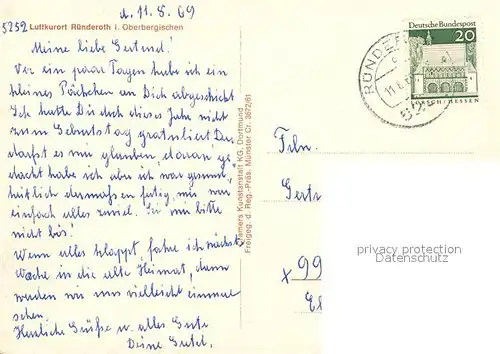 d. 11.8.69
5252 Luftkurort Ründeroth i. Oberbergischen
Meine liebe Gertrud!
Vor ein paar Tagen habe ich ein
kleines Päckchen an Dich abgeschickt
Ich hatte Dir doch dieses Jahr nicht
zum Geburtstag gratuliert Du
darfst es mir glauben, daran ge-
dacht habe ich aber ich war gesund-
heitlich dermaßen fertig, mir war
einfach alles zuviel. Sei mir bitte
nicht bös!
Wenn alles klappt, fahre ich nächste
Woche in die alte Heimat, dann
werden wir uns vielleicht einmal
sehen.
Herzliche Grüße u. alles Gute
Deine
Cramers Kunstanstalt KG, Dortmund
Freigeg. d. Reg.-Präs. Münster Nr. 3672/61
Deutsche Bundespost
20
LORSCH/HESSEN
RÜNDE
11.8.
52
Frln.
Gertr
x 99
privacy protection
Datenschutz